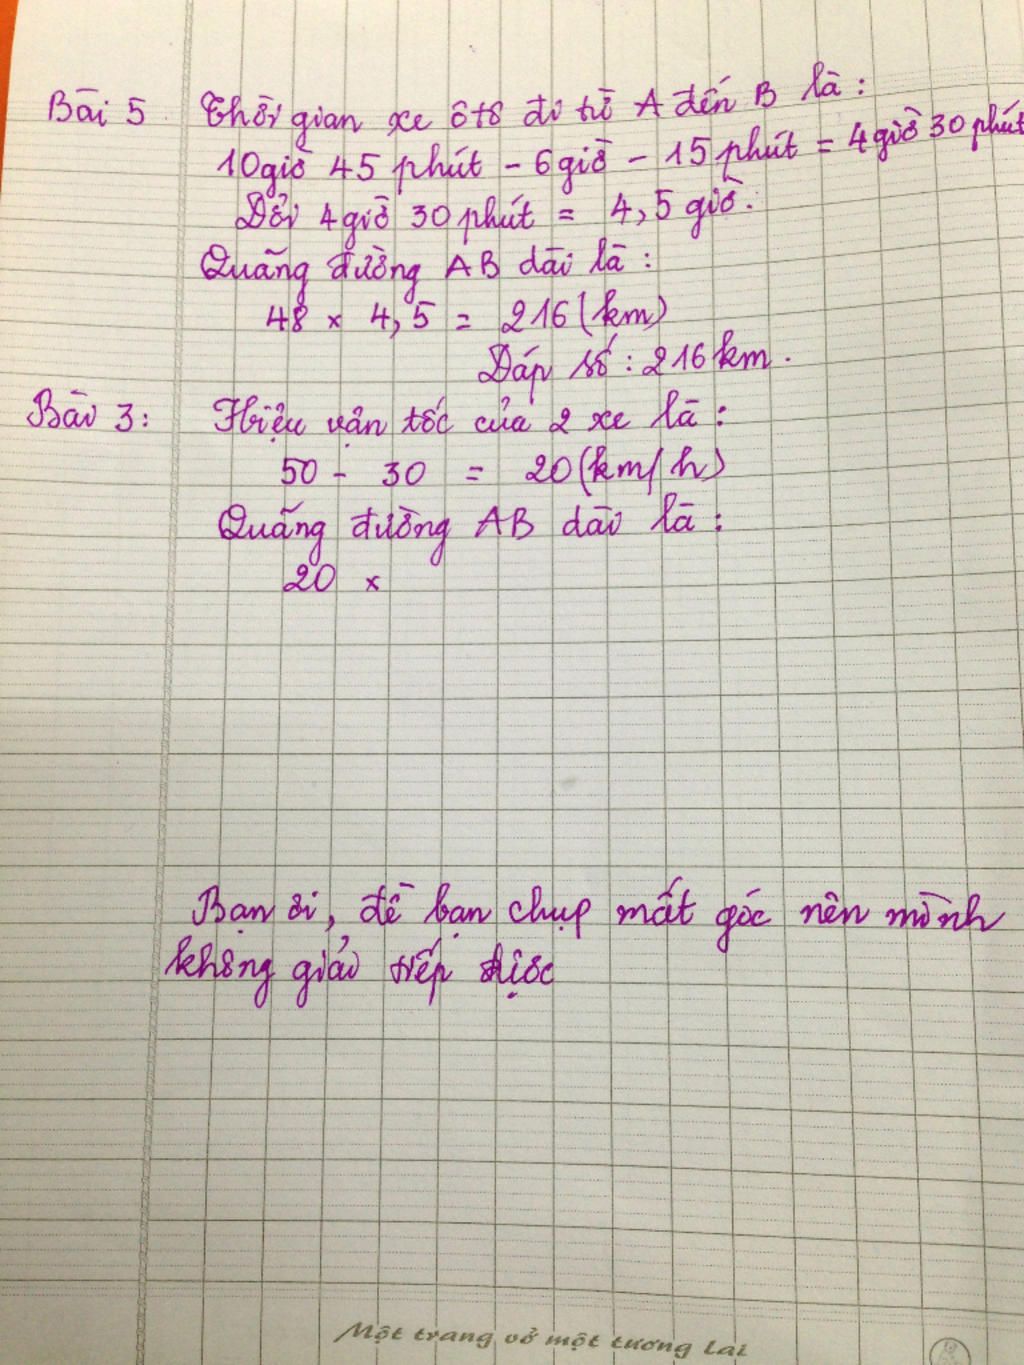 Bài 5 Thời gian xe ô tô đi từ A đến B là :
10 giờ 45 phút - 6 giờ - 15 phút = 4 giờ 30 phút
Đổi 4 giờ 30 phút = 4,5 giờ.
Quãng đường AB dài là :
48 × 4,5 = 216 (km)
Đáp số : 216 km .
Bài 3 : Hiệu vận tốc của 2 xe là :
50 - 30 = 20 (km/h)
Quãng đường AB dài là :
20 ×
Bạn ơi, đề bạn chụp mất góc nên mình
không giải tiếp được
Một trang vở một tương lai